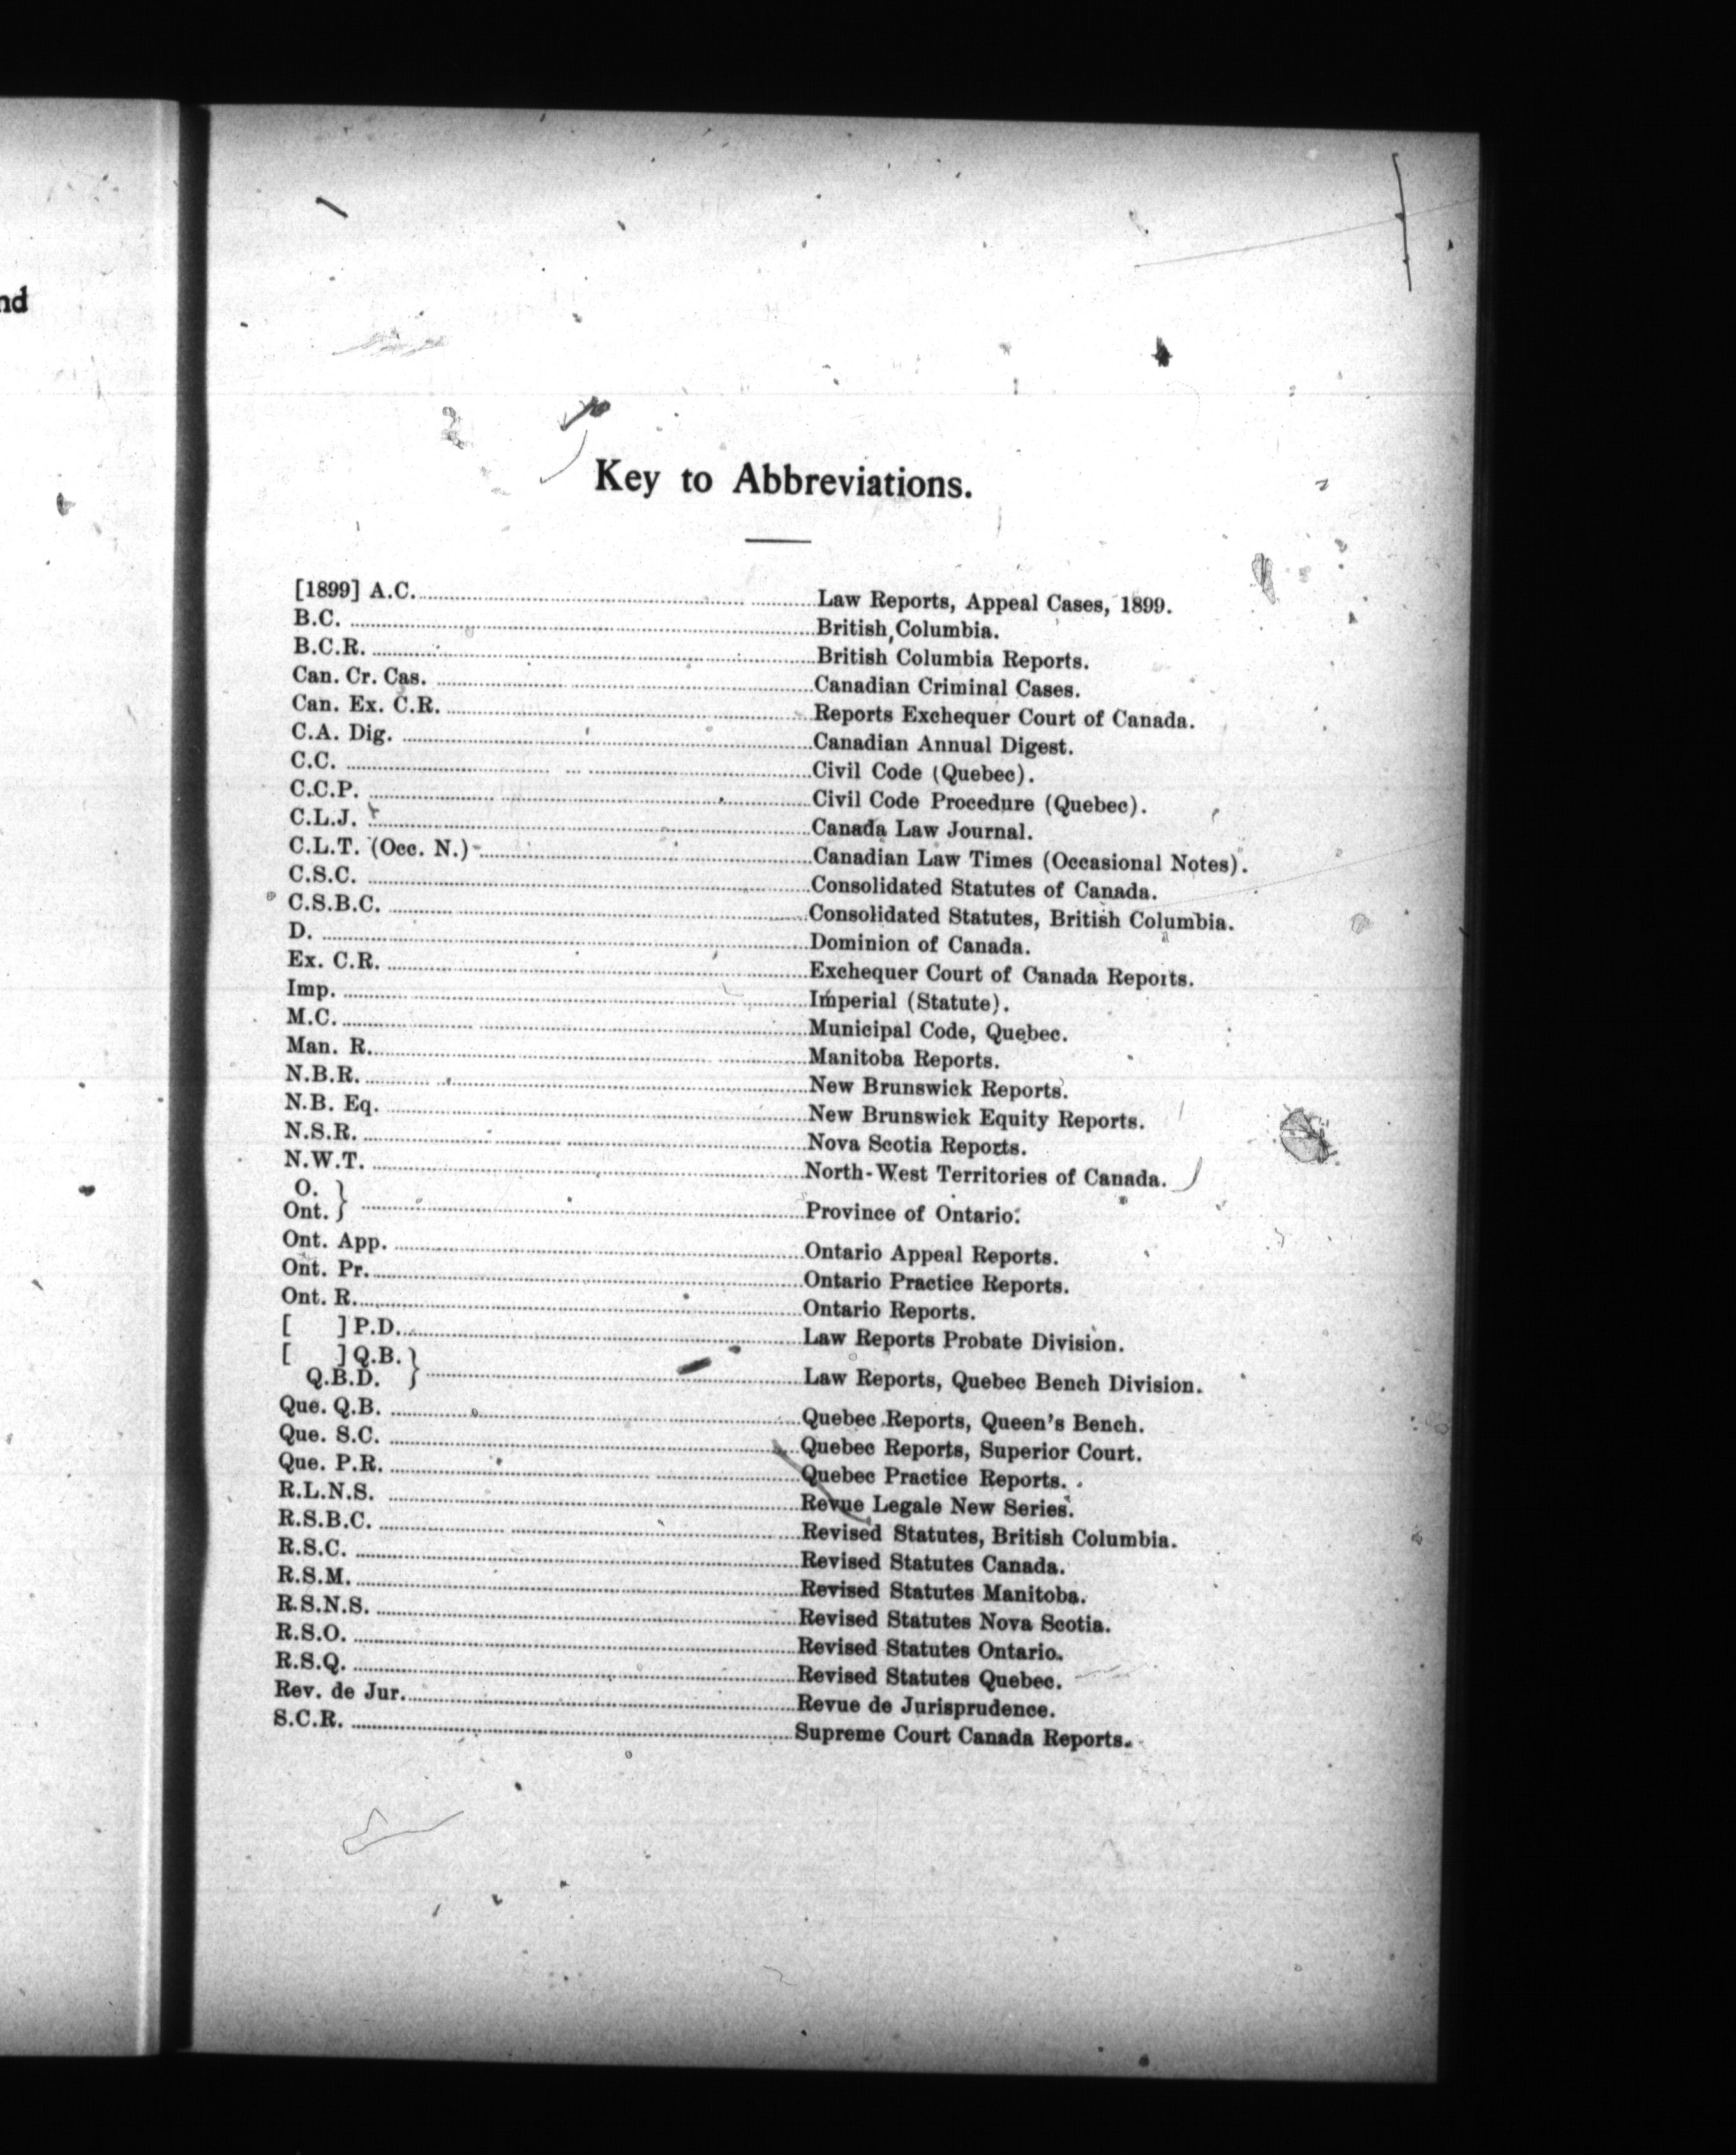 nd
Key to Abbreviations.
[1899] A.C. Law Reports, Appeal Cases, 1899.
B.C. British Columbia.
B.C.R. British Columbia Reports.
Can. Cr. Cas. Canadian Criminal Cases.
Can. Ex. C.R. Reports Exchequer Court of Canada.
C.A. Dig. Canadian Annual Digest.
C.C. Civil Code (Quebec).
C.C.P. Civil Code Procedure (Quebec).
C.L.J. Canada Law Journal.
C.L.T. (Occ. N.) Canadian Law Times (Occasional Notes).
C.S.C. Consolidated Statutes of Canada.
C.S.B.C. Consolidated Statutes, British Columbia.
D. Dominion of Canada.
Ex. C.R. Exchequer Court of Canada Reports.
Imp. Imperial (Statute).
M.C. Municipal Code, Quebec.
Man. R. Manitoba Reports.
N.B.R. New Brunswick Reports.
N.B. Eq. New Brunswick Equity Reports.
N.S.R. Nova Scotia Reports.
N.W.T. North-West Territories of Canada.
O.
Ont. } Province of Ontario.
Ont. App. Ontario Appeal Reports.
Ont. Pr. Ontario Practice Reports.
Ont. R. Ontario Reports.
[ ] P.D. Law Reports Probate Division.
[ ] Q.B.
Q.B.D. } Law Reports, Quebec Bench Division.
Que. Q.B. Quebec Reports, Queen's Bench.
Que. S.C. Quebec Reports, Superior Court.
Que. P.R. Quebec Practice Reports.
R.L.N.S. Revue Legale New Series.
R.S.B.C. Revised Statutes, British Columbia.
R.S.C. Revised Statutes Canada.
R.S.M. Revised Statutes Manitoba.
R.S.N.S. Revised Statutes Nova Scotia.
R.S.O. Revised Statutes Ontario.
R.S.Q. Revised Statutes Quebec.
Rev. de Jur. Revue de Jurisprudence.
S.C.R. Supreme Court Canada Reports.